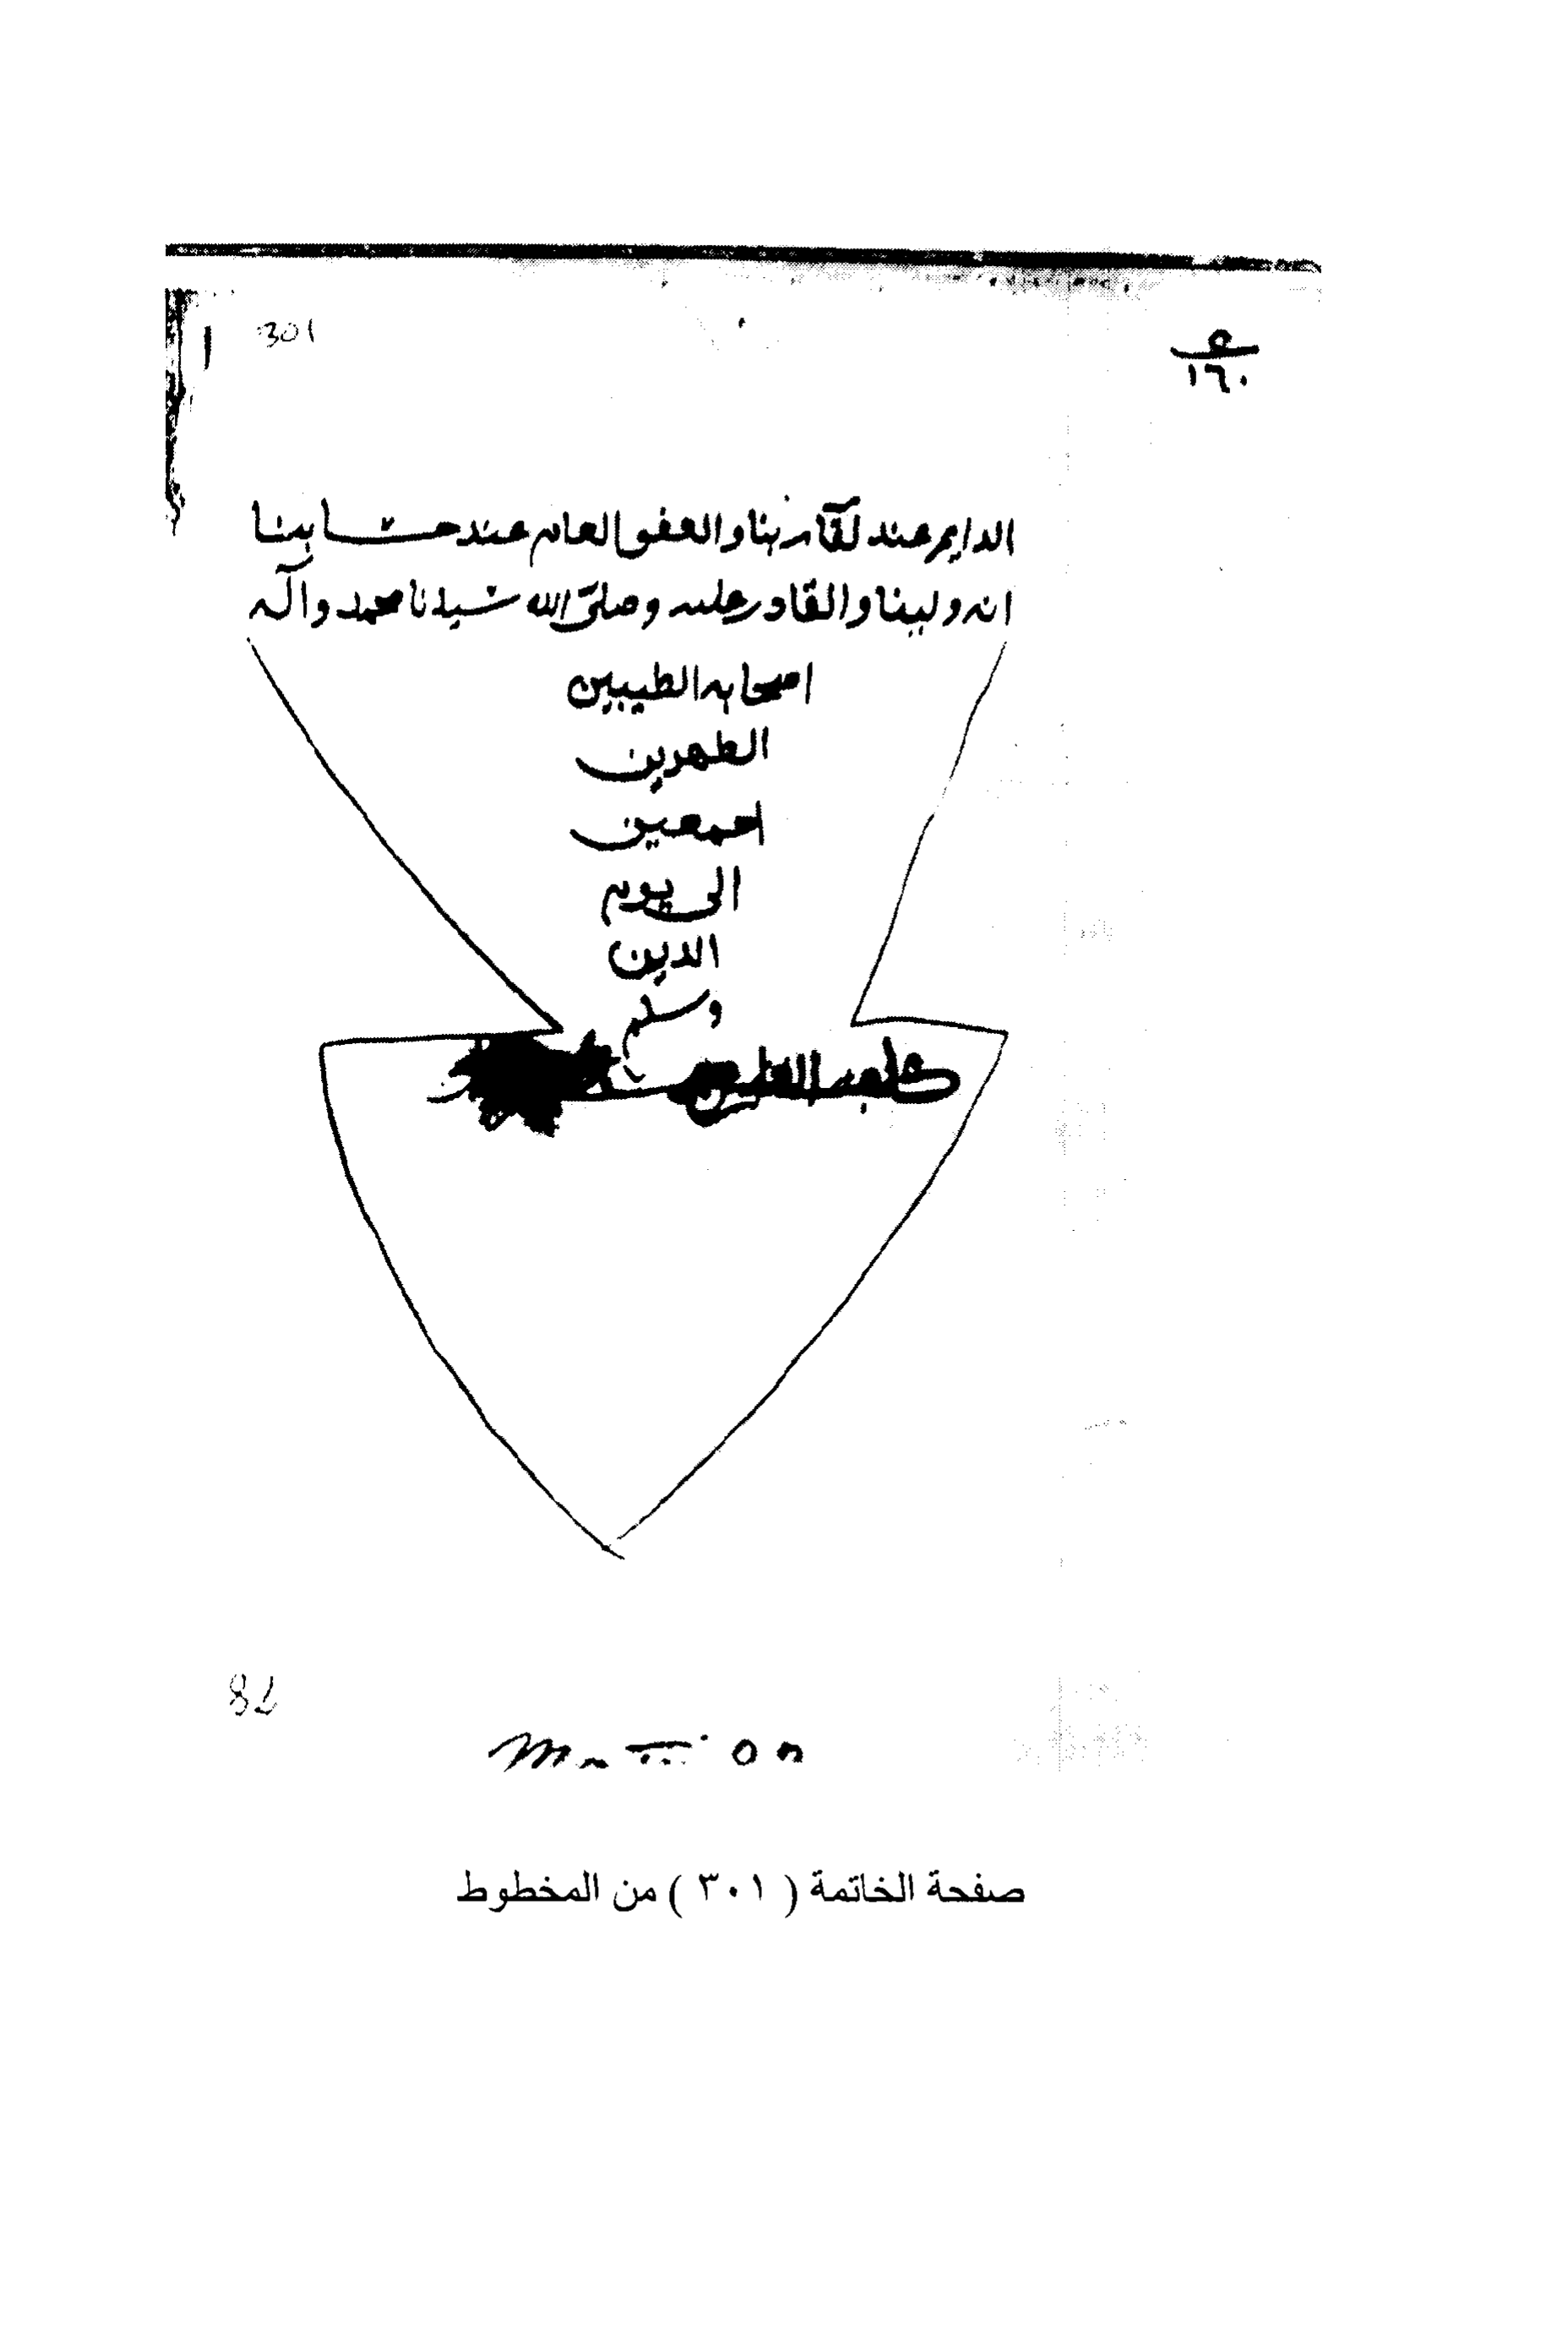 301
١٦٠
الدايم عند لقآ ربنا والعفو العام عند حسابنا
انه ولينا والقادر عليه وصلى الله سيدنا محمد وآله
اصحابه الطيبين
الطهرين
اجمعين
الى يوم
الدين
وسلم
صفحة الخاتمة ( ٣٠١ ) من المخطوط